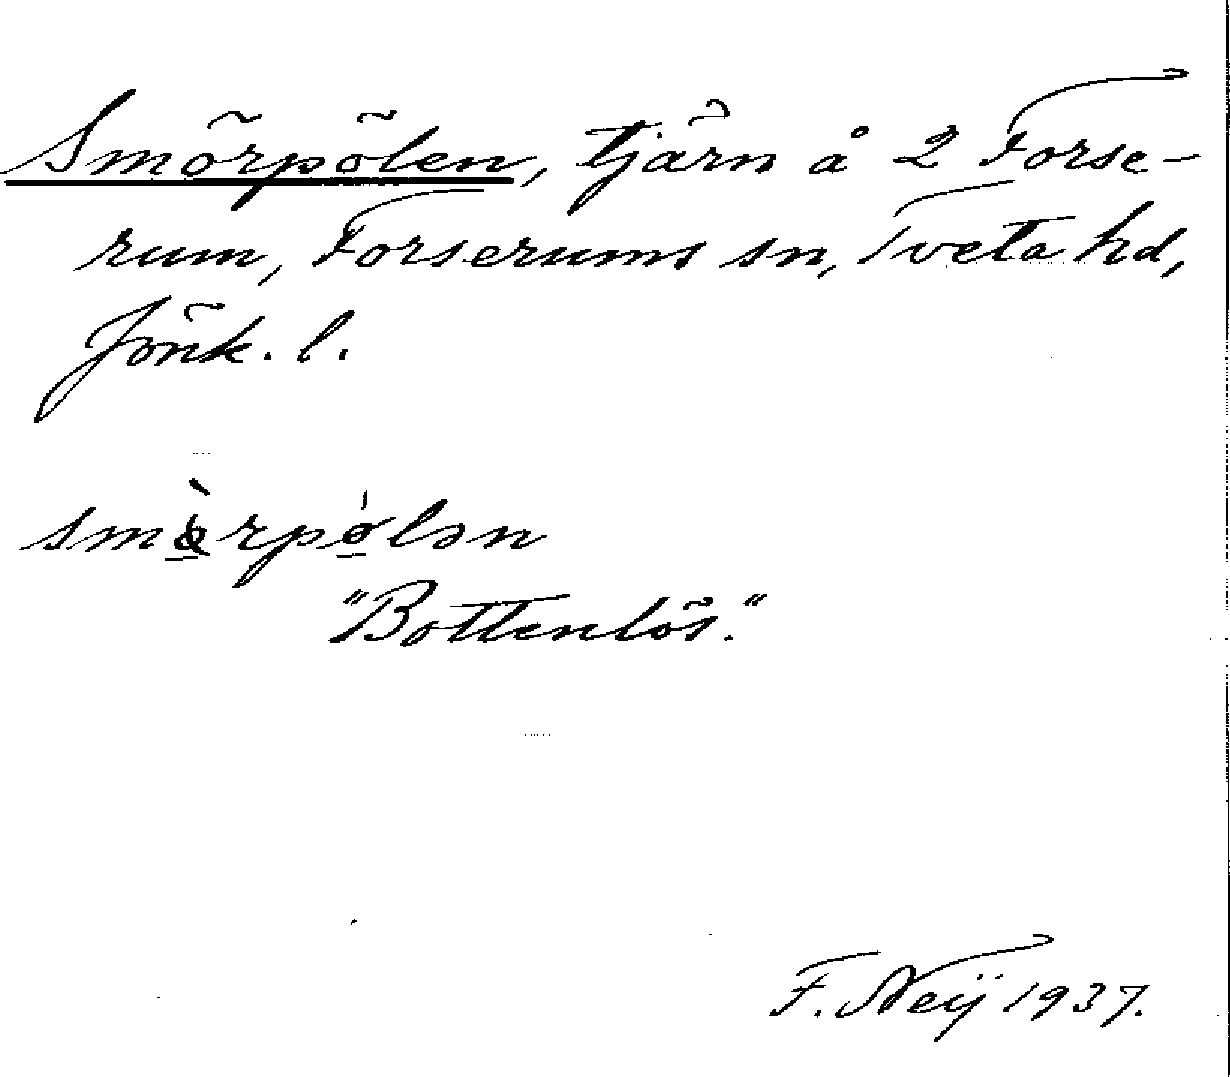 Smörpölen, tjärn å 2 Forse-
rum, Forserums sn, Tveta hd,
Jönk. l.
smø̀rpǿlən
"Bottenlös."
F. Neij 1937.